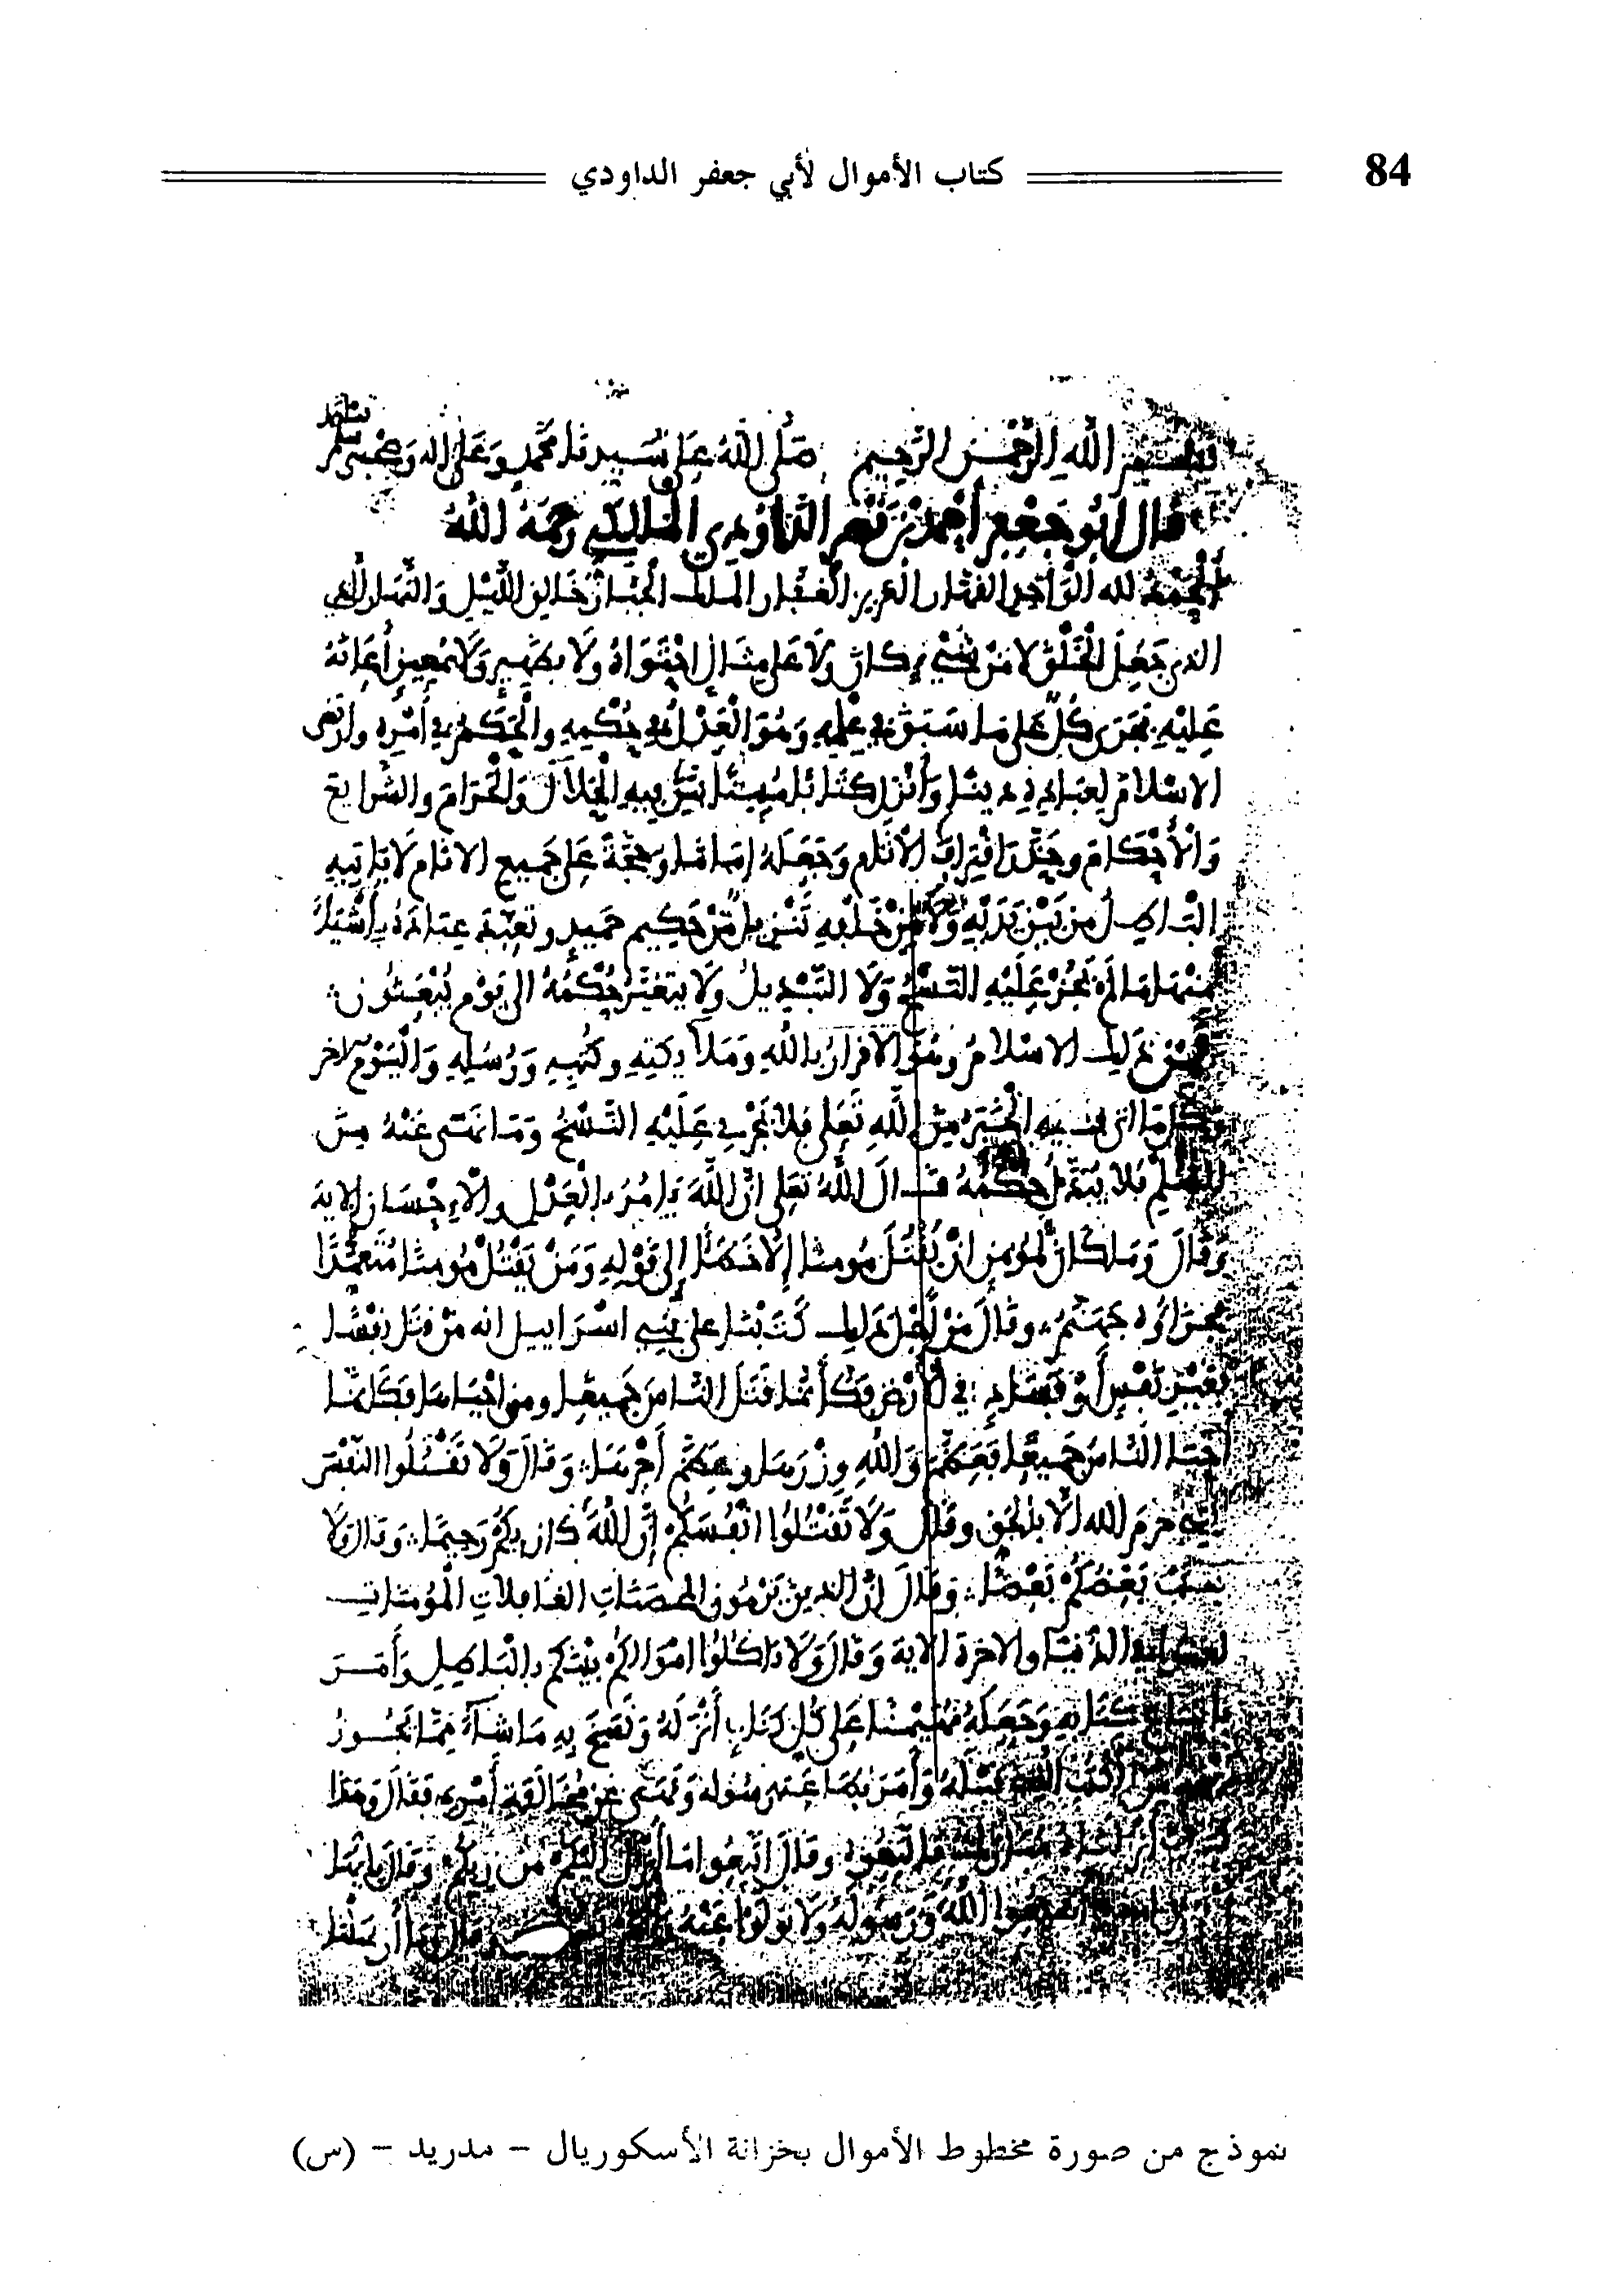 84
كتاب الأموال لأبي جعفر الداودي
بسم الله الرحمن الرحيم صلى الله على سيدنا محمد وعلى اله وصحبه وسلم تسليما
قال ابو جعفر أحمد بن نصر الداودي المالكي رحمه الله
الحمد لله الواحد القهار العزيز الغفار الملك الجبار خالق الليل والنهار
الذي جعل الخلق لا من شيء كان ولا على مثال احتواه ولا بظهير ولا بمعين أعانه
عليه فجرى كل على ما سبق في علمه وهو العدل في حكمه والحكم في أمره وارتضى
الاسلام لعباده دينا وأنزل كتابا مبينا بين فيه الحلال والحرام والشرايع
والأحكام وحذر اقتراف الآثام وجعله إماما وحجة على جميع الانام لا ياتيه
الباطل من بين يديه ولا من خلفه تنزيل من حكيم حميد وتعبد عباده بأشياء
منها ما لم يجز عليه النسخ ولا التبديل ولا يتغير حكمه الى يوم يبعثون
فمن ذلك الاسلام وهو الاقرار بالله وملائكته وكتبه ورسله واليوم الاخر
وكل ما اتى فيه الخبر من الله تعلى فلا يجري عليه النسخ وما نهى عنه من
الظلم فلا يتبدل حكمه قال الله تعلى ان الله يامر بالعدل والإحسان الاية
وقال وما كان لمومن ان يقتل مومنا إلا خطأ إلى قوله ومن يقتل مومنا متعمدا
فجزاؤه جهنم وقال من أجل ذلك كتبنا على بني اسراييل انه من قتل نفسا
بغير نفس أو فساد في الأرض فكأنما قتل الناس جميعا ومن احياها فكانما
أحيا الناس جميعا فعظم والله وزرها وعظم أجرها وقال ولا تقتلوا النفس
التي حرم الله الا بالحق وقال ولا تقتلوا انفسكم إن الله كان بكم رحيما وقال ولا
يغتب بعضكم بعضا وقال ان الذين يرمون المحصنات الغافلات المومنات
لعنوا في الدنيا والاخرة الاية وقال ولا تاكلوا اموالكم بينكم بالباطل وأمر
باتباع كتابه وجعله مهيمنا على كل كتاب أنزله ونسخ به ما شاء مما يجوز
الكتب قبله وأمر بما فيه ونهى عن مخالفة أمره فقال وهذا
كتاب أنزلناه مبارك فاتبعوه وقال اتبعوا ما أنزل اليكم من ربكم وقال يا أيها
الله ورسوله ولا تولوا عنه وقال وما أرسلنا
نموذج من صورة مخطوط الأموال بخزانة الأسكوريال - مدريد - (س)